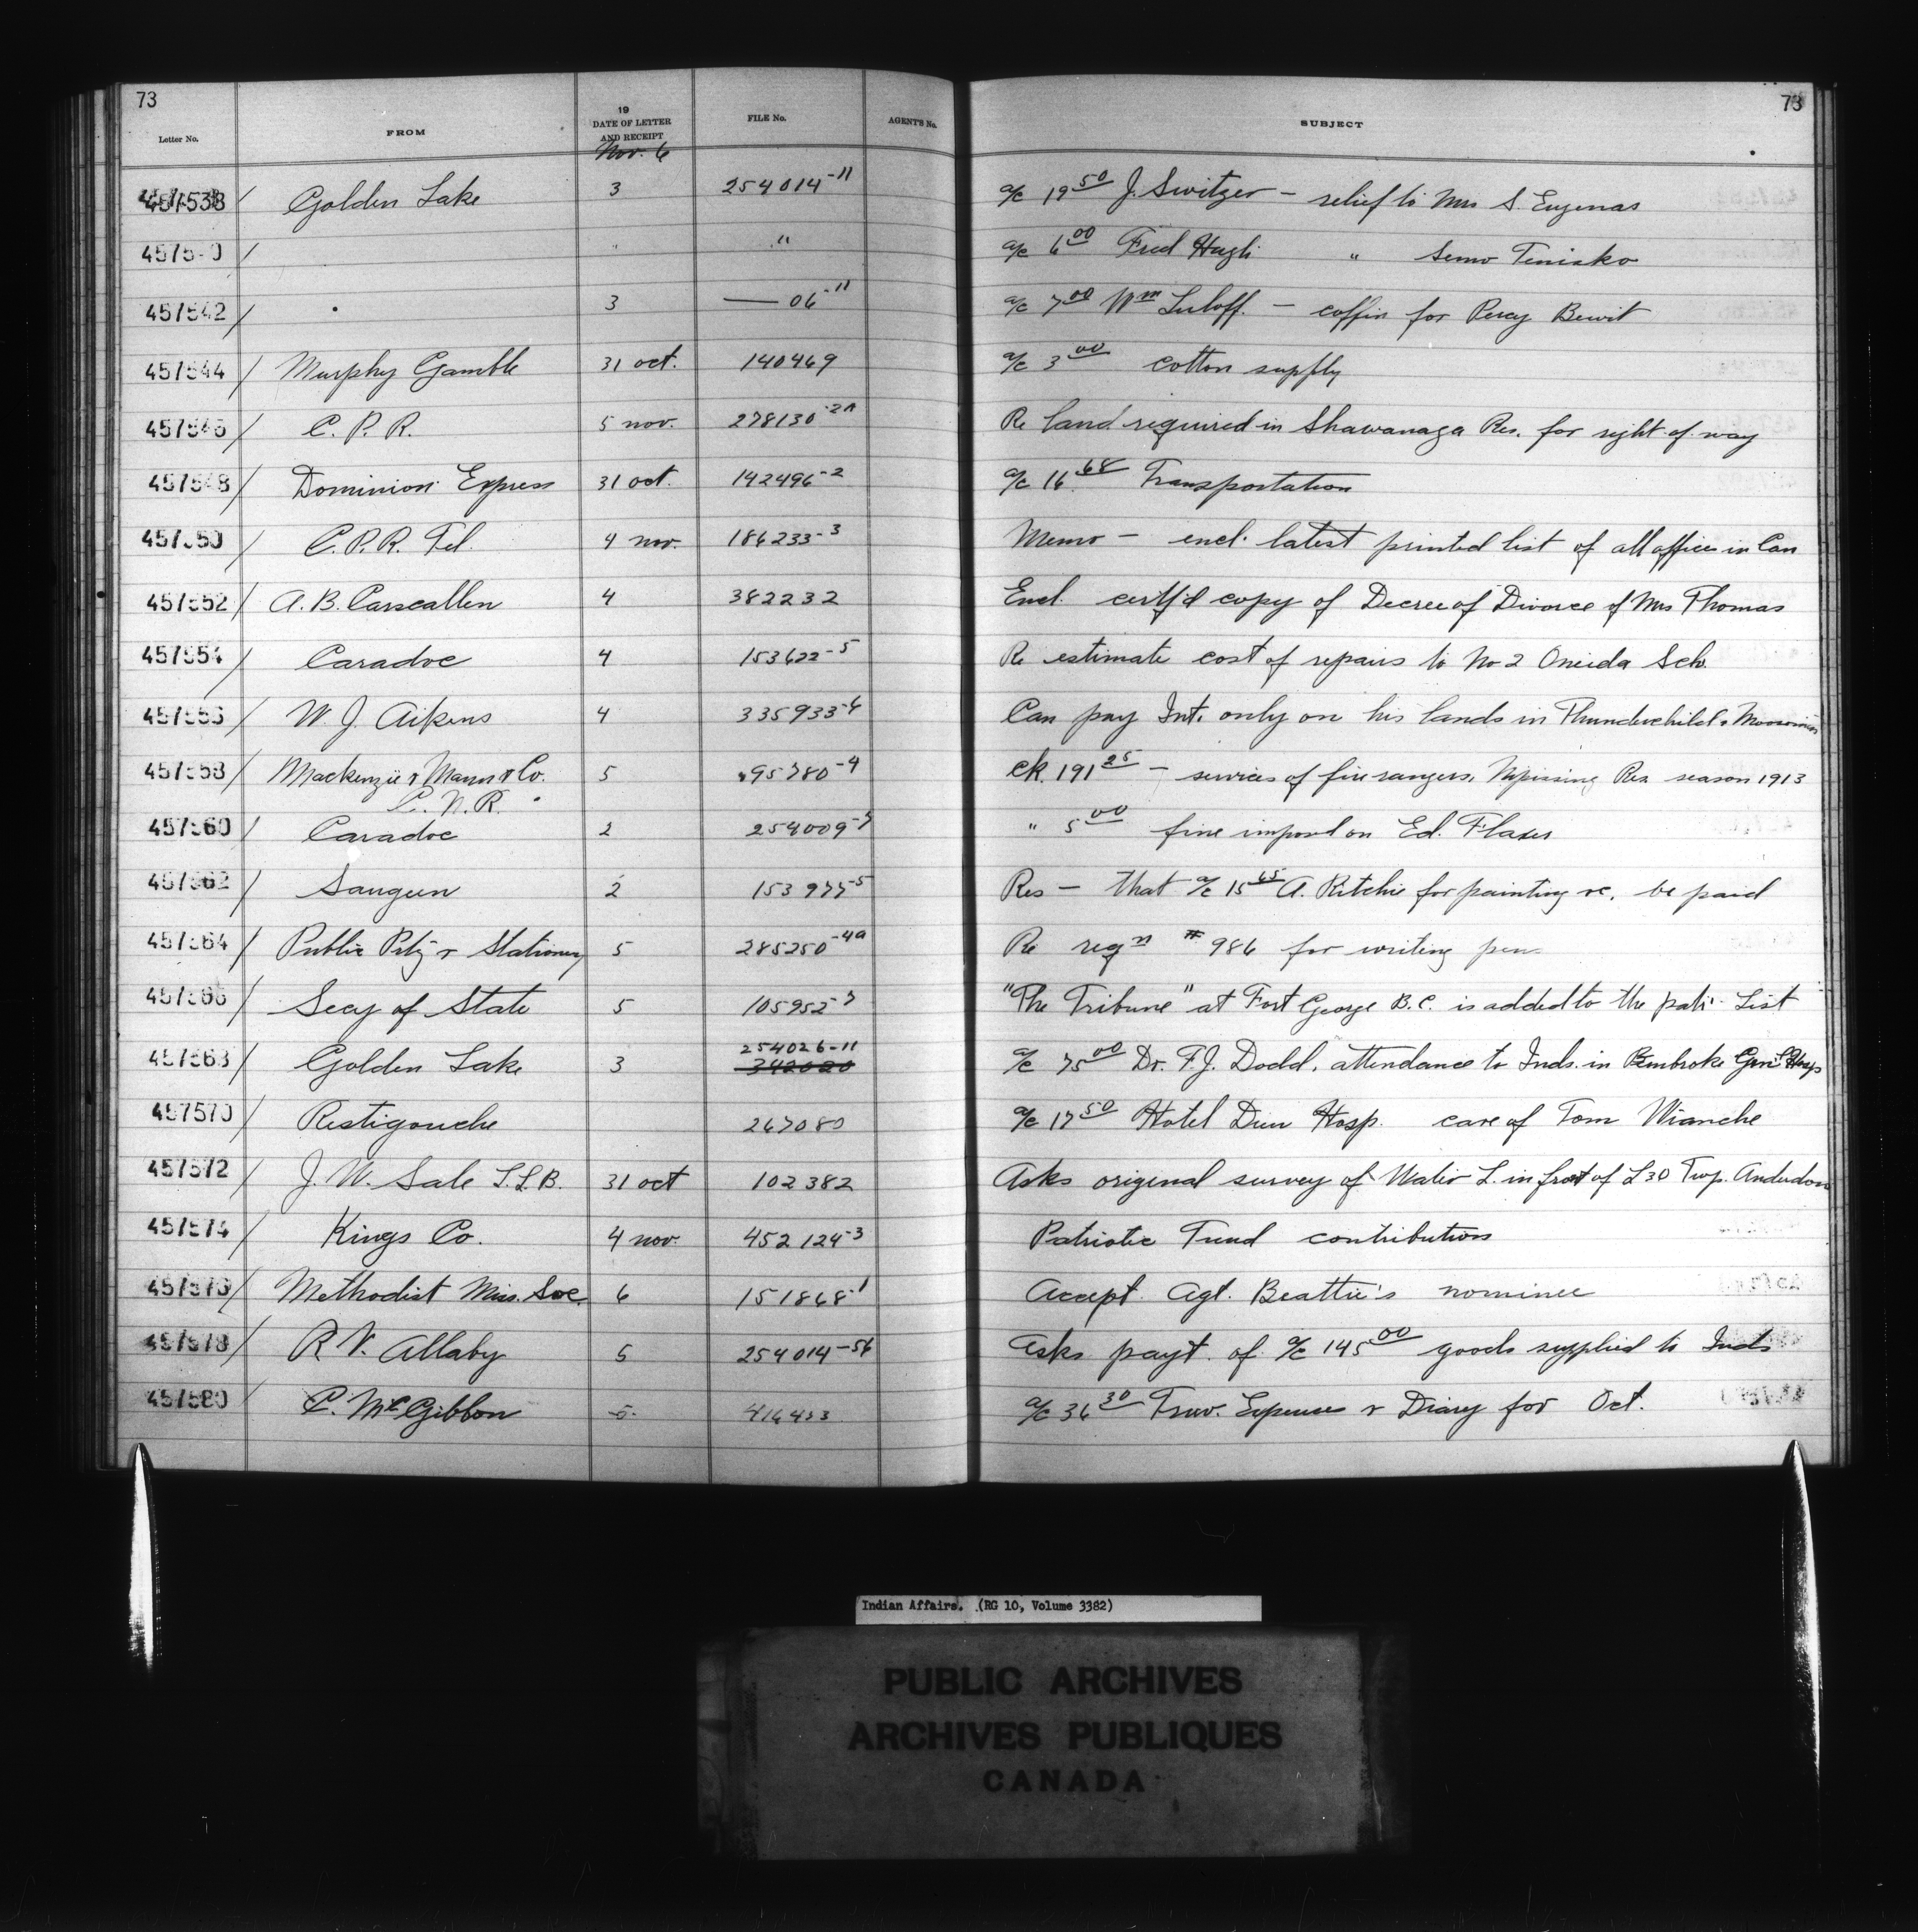 73
73
Letter No. FROM 19 DATE OF LETTER AND RECEIPT FILE No. AGENT'S No. SUBJECT
Nov. 6
457538 / Golden Lake 3 254014-11 a/c 19 50 J. Switzer — relief to Mrs S.
4575 0 / " " a/c 6 00 Fred Hagli "
457542 / 3 — 06-11 a/c 7 00 Wm Luloff. — coffin for Percy
457544 / Murphy Gamble 31 oct. 140469 a/c 3 00 cotton supply
457546 / C. P. R. 5 nov. 278130-2A Re land required in Shawanaga Res. for right of way
457548 / Dominion Express 31 oct. 142496-2 a/c 16 68 Transportation
457550 / C. P. R. Tel. 4 nov. 186233-3 Memo — encl. latest printed list of all offices in Can
457552 / A. B. Carscallen 4 382232 Encl. certf'd copy of Decree of Divorce of Mrs Thomas
457554 / Caradoc 4 153622-5 Re estimate cost of repairs to No 2 Oneida Sch.
457556 / W. J. Aikens 4 335933-6 Can pay Int. only on his lands in Thunderchild & Moosomin
457558 / Mackenzie & Mann & Co. 5 95780-4 Ck. 191 25 — services of fire rangers, Nipissing Res season 1913
C. N. R.
457560 / Caradoc 2 254009-5 " 5 00 fine imposed on Ed.
457562 / Saugeen 2 153975-5 Res — that a/c 15 65 A. Ritchie for painting &c. be paid
457564 / Public Ptg & Stationery 5 285250-4a Re reqn # 986 for writing pen
457566 / Secy of State 5 105952-7 "The Tribune" at Fort George B.C. is added to the pat. List
457568 / Golden Lake 3 254026-11 a/c 75 00 Dr. F. J. Dodd, attendance to Inds. in Pembroke Gen'l Hosp
342020
457570 / Restigouche 267080 a/c 17 50 Hotel Dieu Hosp. care of Tom
457572 / J. W. Sale L.L.B. 31 oct 102382 Asks original survey of Water L. in front of L 30 Twp. Anderdon
457574 / Kings Co. 4 nov. 452124-3 Patriotic Fund contributions
457576 / Methodist Miss. Soc. 6 151868-1 Accept Agt. Beattie's nominee
457578 / R. V. Allaby 5 254014-56 Asks payt. of a/c 145 00 goods supplied to Inds
457580 / C. McGibbon 5 416453 a/c 36 30 Trav. Expenses & Diary for Oct.
Indian Affairs. (RG 10, Volume 3382)
PUBLIC ARCHIVES
ARCHIVES PUBLIQUES
CANADA